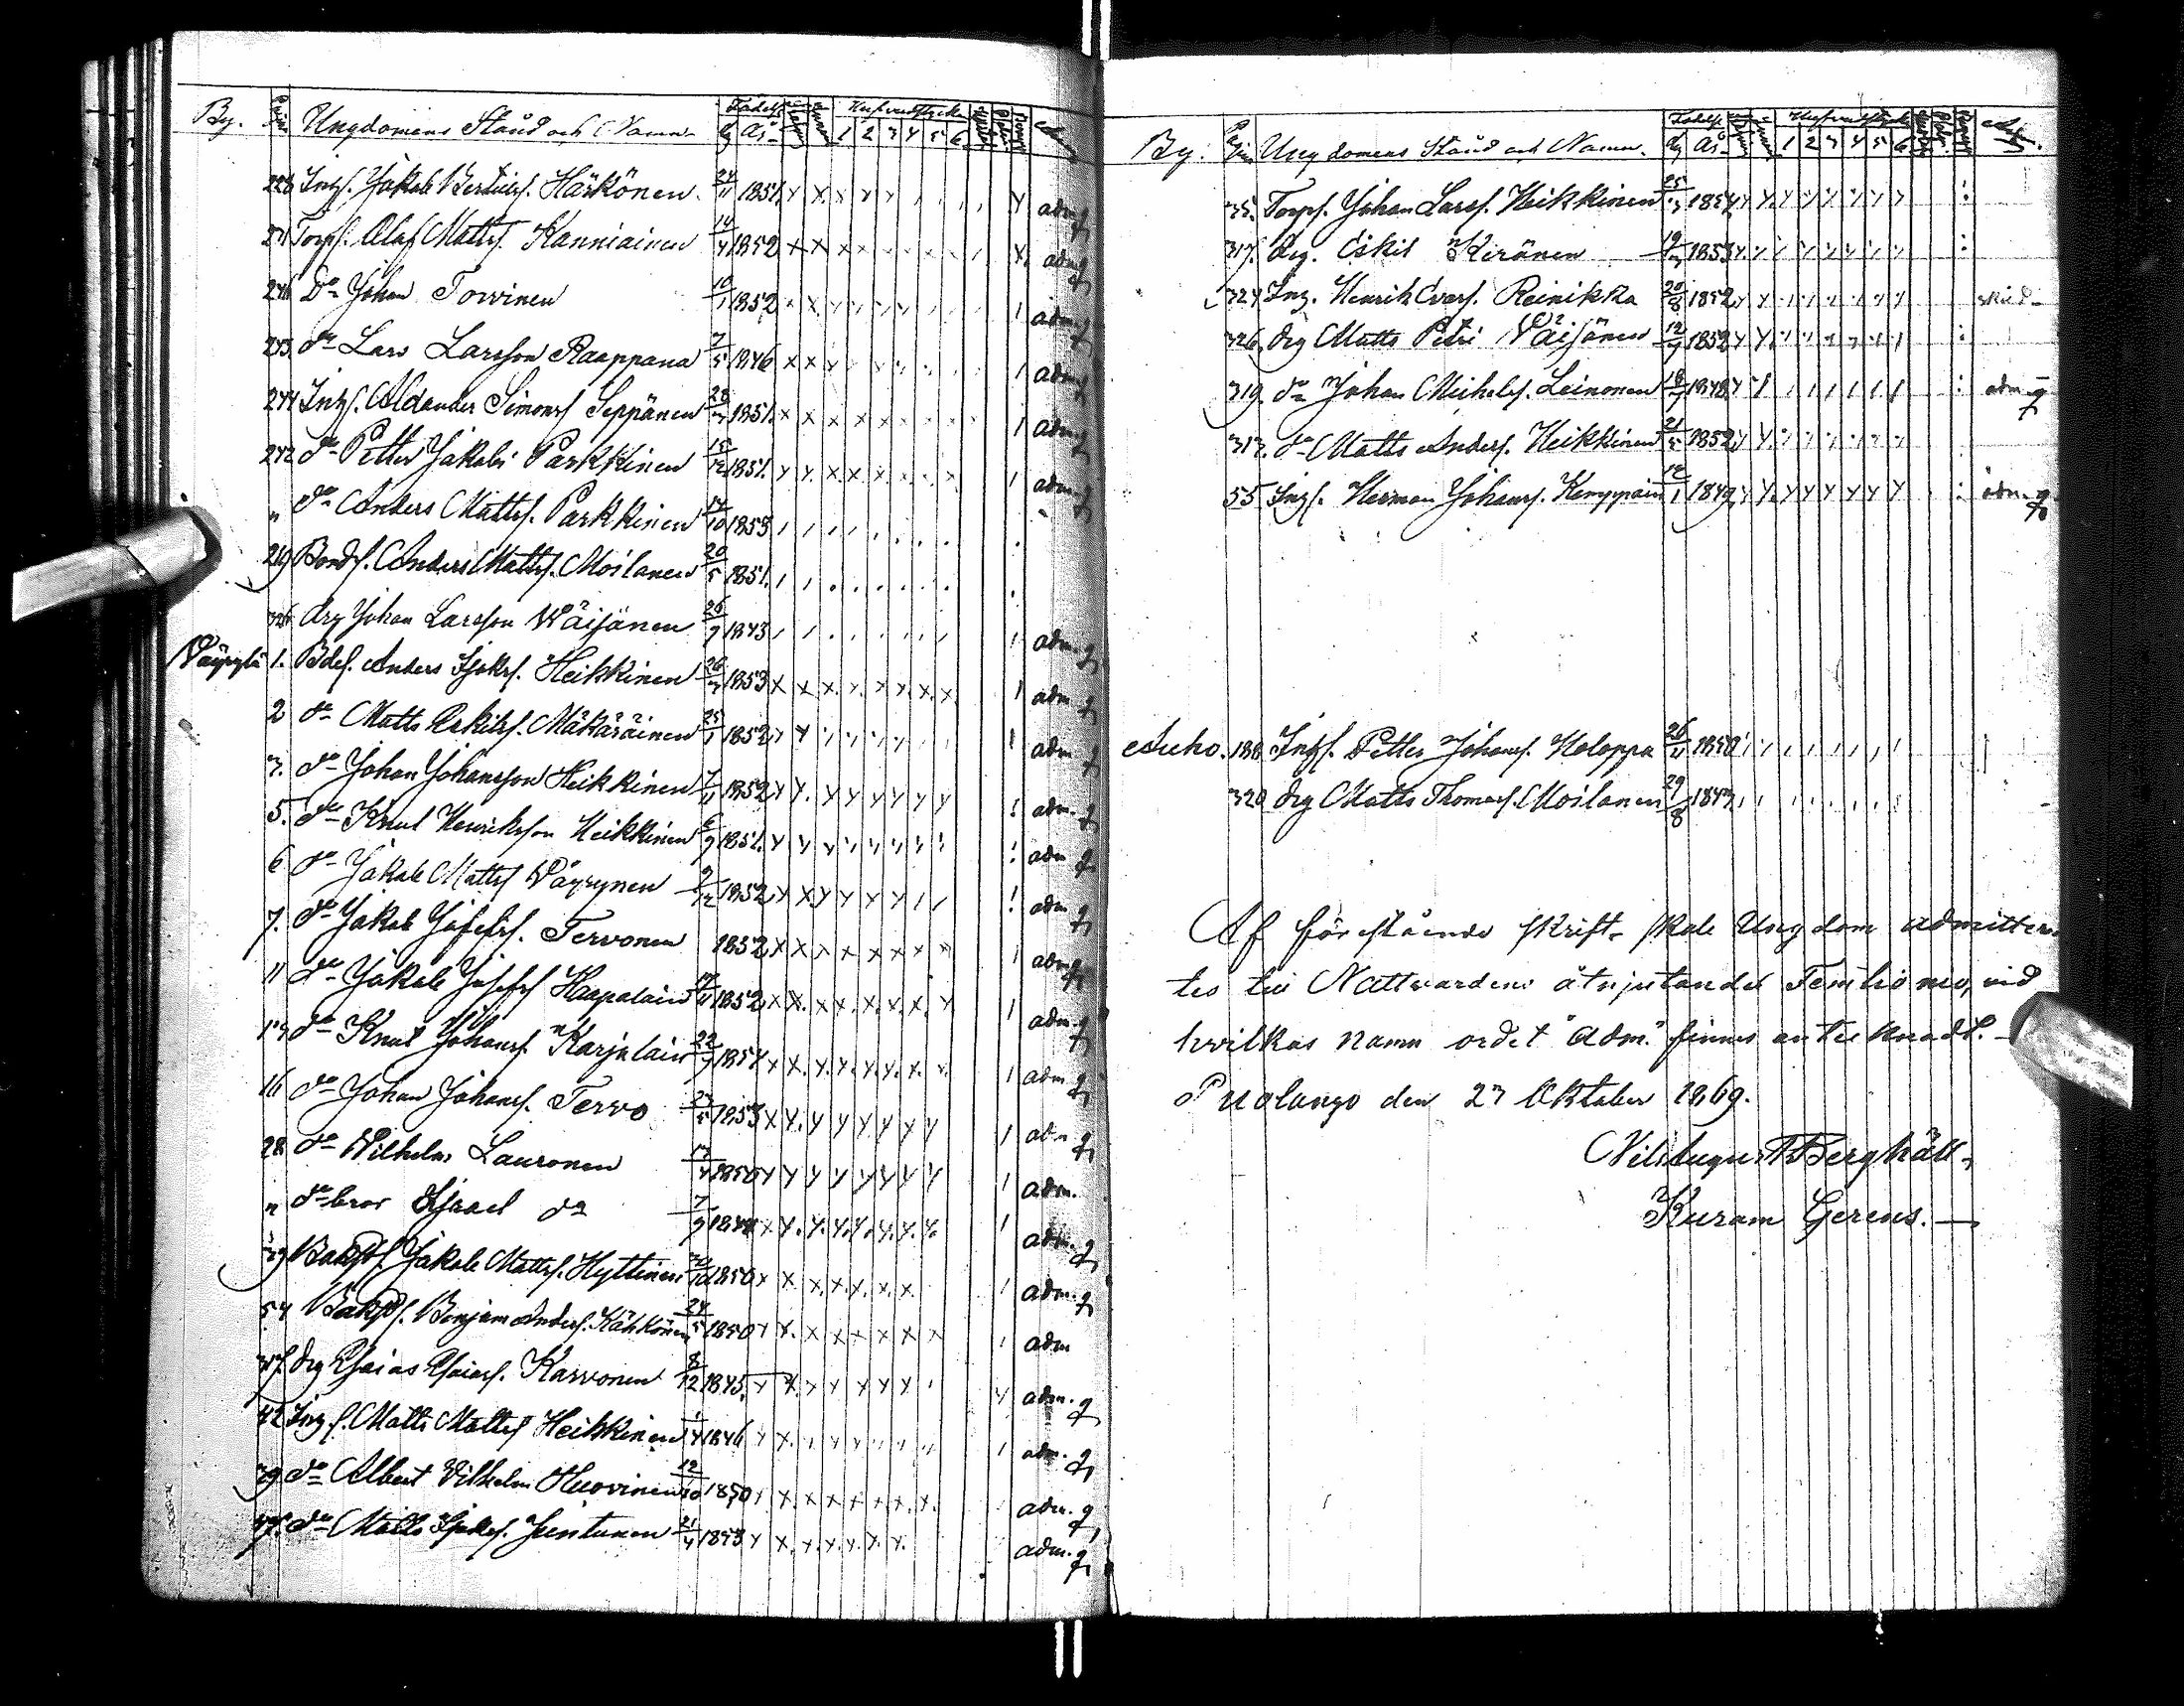 By. Ungdomens Stånd och Namn. Födels. Dg År 1 2 3 4 5 6
228 Inhs. Jakob Bertils. Härkönen 24/11 1851. adm. g
Torps. Olaf Matts. Kanniainen 14/4 1852 adm. g
Do Johan Torvinen 10/1 1852 adm. g
243. do Lars Larsson Raappana 7/5 1846 adm. g
244 Inhs. Aldander Simons Seppänen 28/3 1851. adm. g
242 do Petter Jakobs Parkkinen 15/12 1851. adm. g
" do Anders Matts. Parkkinen 14/10 1853
219 Bonds. Anders Matts. Moilanen 20/5 1851.
326 drg Johan Larsson Wäisänen 26/9 1843 adm. g
Väyrylä 1. Bdes. Anders Isaks. Heikkinen 26/3 1853 adm. g
2 do Matts Eskils. Mäkäräinen 25/1 1852 adm. g
3. do Johan Johansson Heikkinen 7/11 1852 adm. g
5. do Knut Henriksson Heikkinen 6/9 1851. adm g
6 do Jakob Matts Väyrynen 9/12 1852 adm. g
7. do Jakob Josefs. Tervonen 1852 adm. g
11 do Jakob Josefs Haapalain 1852 adm. g
13 do Knut Johans. Karjalain 22/9 1854 adm g
16 do Johan Johans. Tervo 23/5 1853 adm g
28 do Wilhelm Lauronen 1850 adm.
" do bror Israel do 7/9 adm. g
29 Jakob Matts. Hyttinen 30/10 1850 adm. g
54 Benjam Anders. Kähkönen 24/5 1850 adm
37. drg Esaias Esaias. Karvonen 8/12 1845. adm. g
42 Inhs. Matts Matts Heikkinen 1846 adm. g
39 do Albert Vilhelm Huovinen 12/10 1850 adm. g
47. do Matts Juntunen 21/4 1853 adm. g
By. Ungdomens Stånd och Namn. Födels. Dg År 1 2 3 4 5 6 Adm.
35. Torps. Johan Larss. Heikkinen 25/3 1854
317. drg. Eskil Keränen 1853
324 Inh. Henrik Evers. Reinikka 20/8 1852
326. drg Matts Petri Wäisänen 12/9 1852
319. do Johan Michels. Leinonen 18/7 1848 adm. g
313. do Matts Anders. Heikkinen 21/5 1852
55 Inhs. Herman Johans. Kemppain 12/1 1849 adm. g
Aucho. 188 Inhs. Petter Johans. Holappa 26/11 1850
320 drg Matts Thomas. Moilanen 29/8 1843
Af förestående skrift-skole Ungdom admitterades
till Nattvardens åtnjutandet Femtio nio, vid
hvilkas namn ordet "adm." finnes antecknadt. –
Puolango den 23 Oktober 1869.
Nils August Bergháll,
Kuram Gerens. —